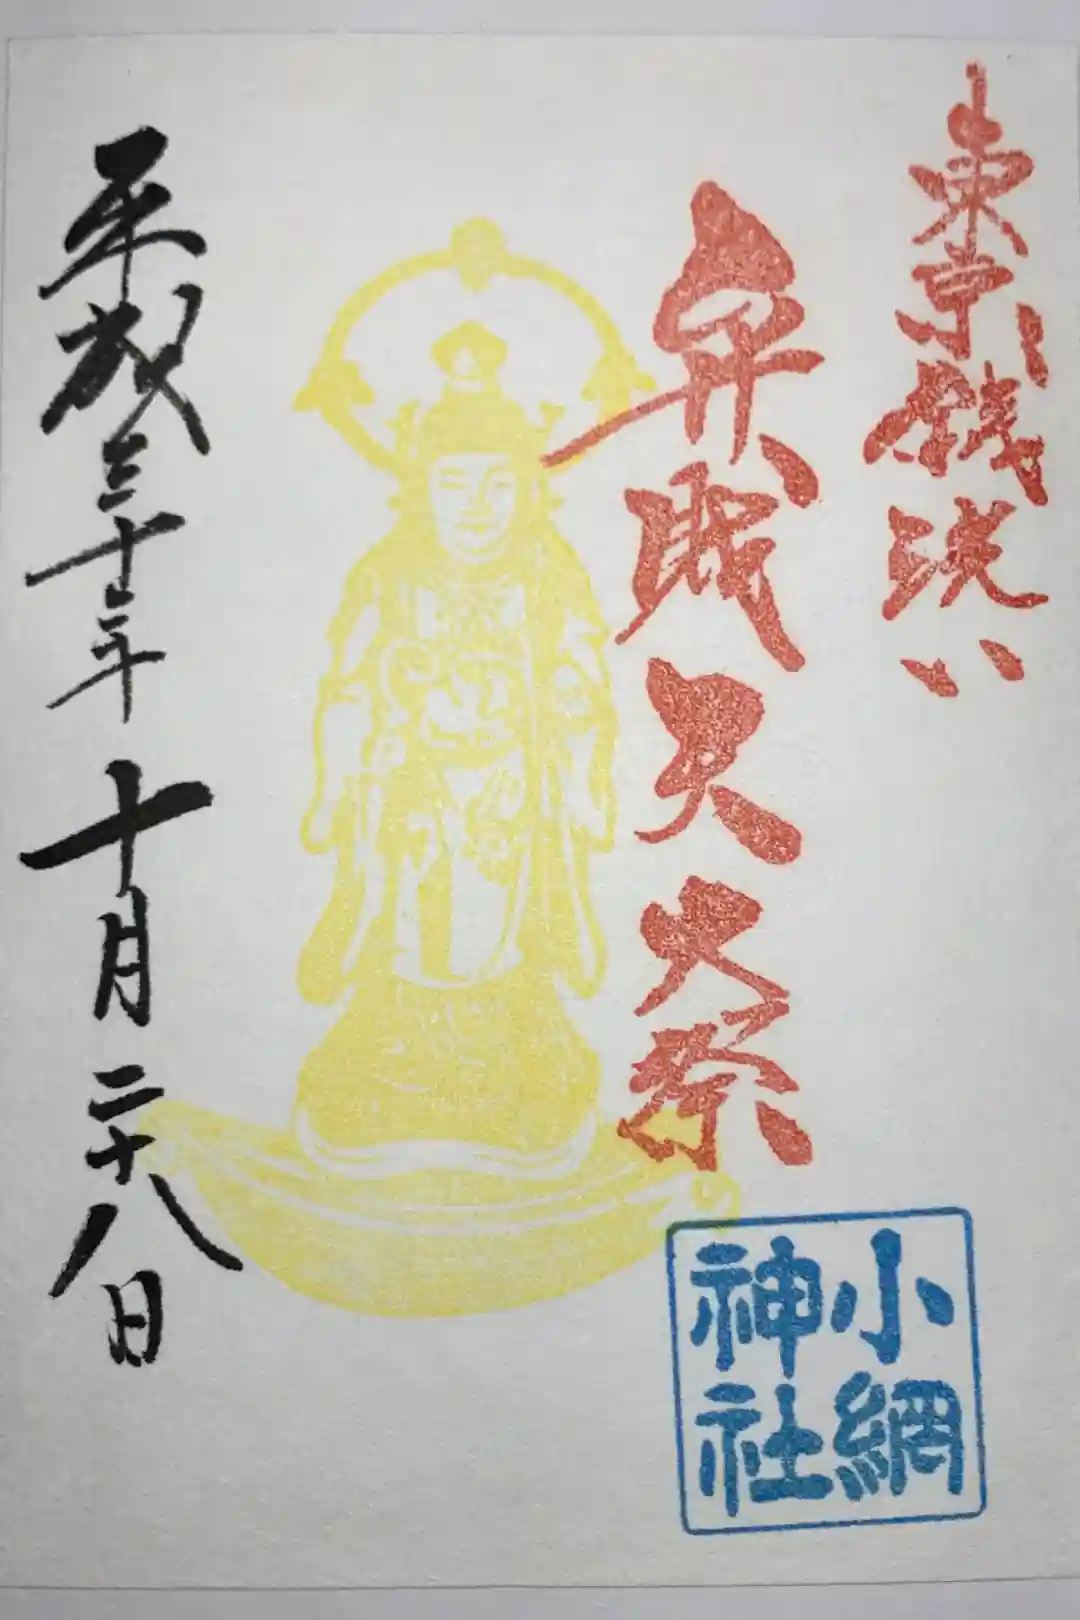 東京銭洗い
弁財天大祭
平成三十年十月二十八日
小網
神社